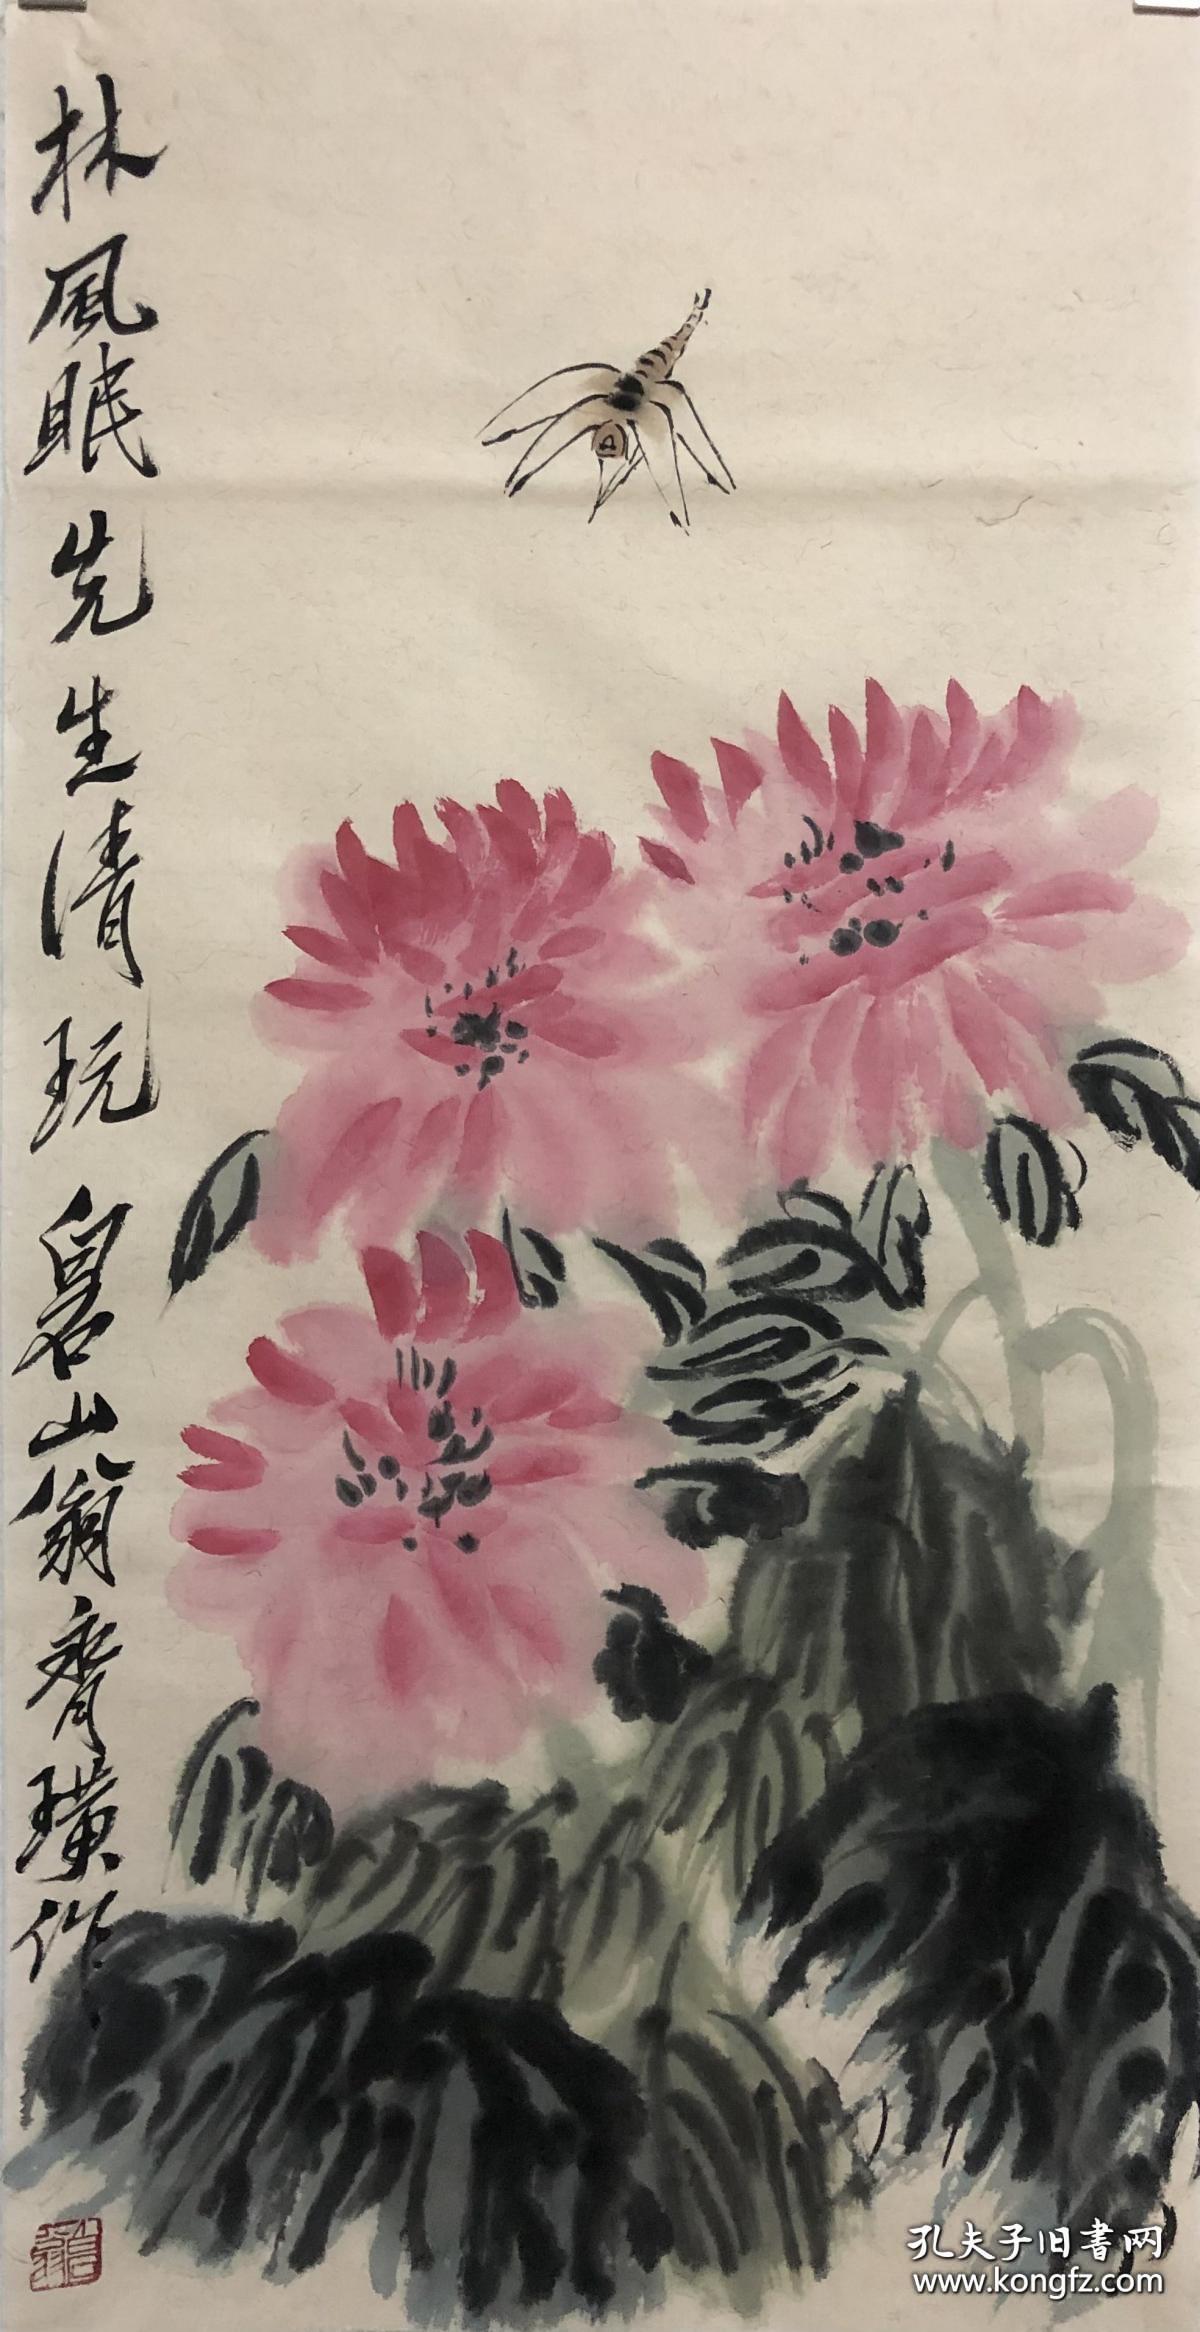 林風眠先生清玩皀石山翁齊璜作
孔夫子旧書网
www.kongfz.com